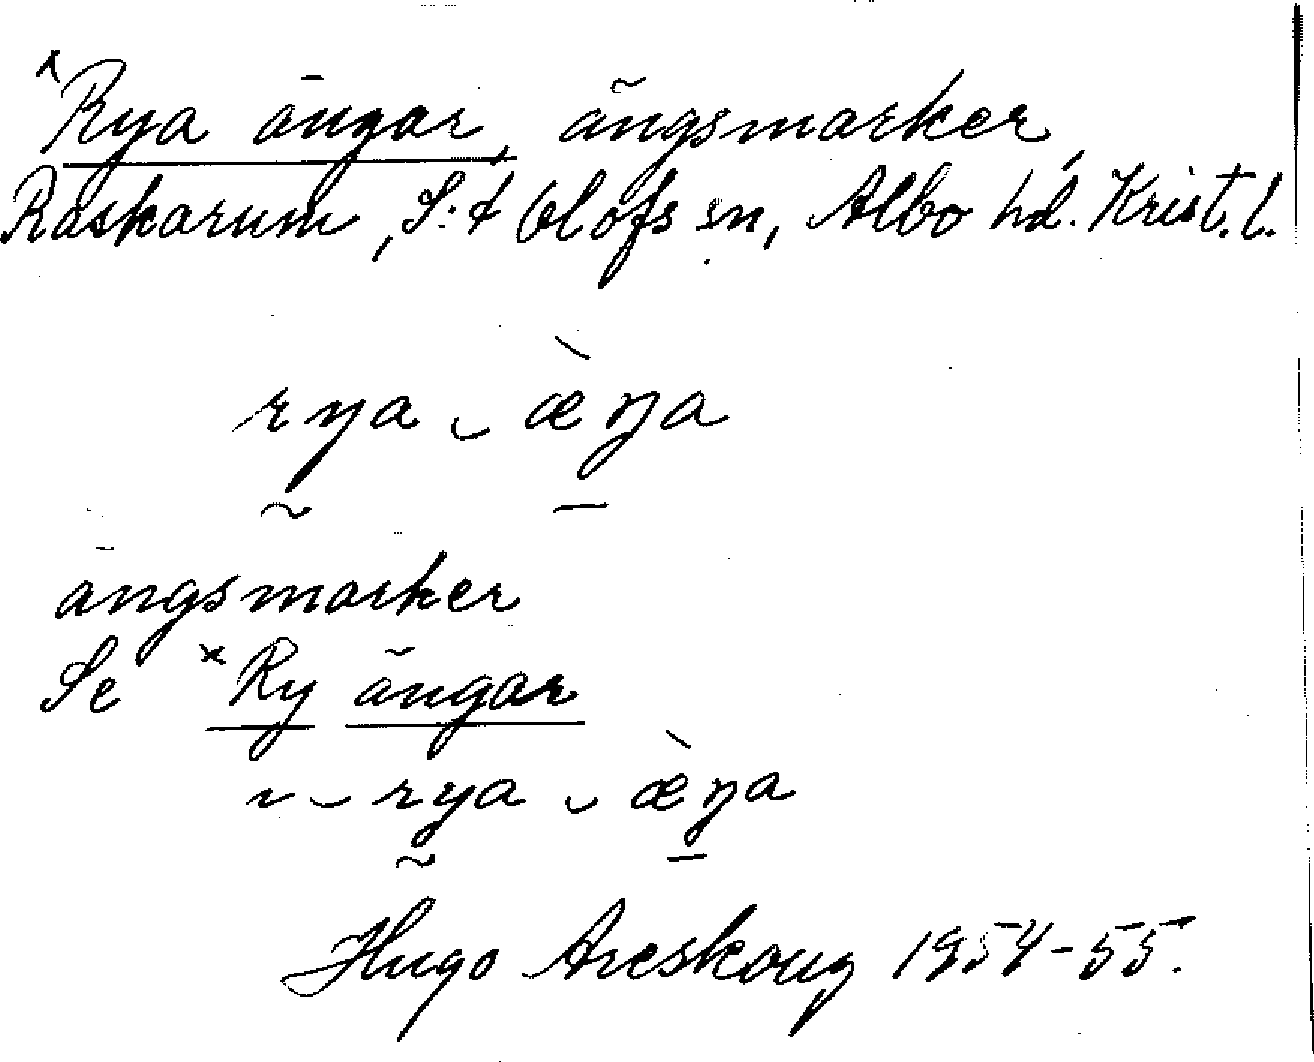 ×Rya ängar, ängsmarker,
Raskarum, S:t Olofs sn, Albo hd. Krist. l.
rya ‿ æ̀ŋa
ängsmarker
Se ×Ry ängar
ı ‿ rya ‿ æ̀ŋa
Hugo Areskoug 1954-55.